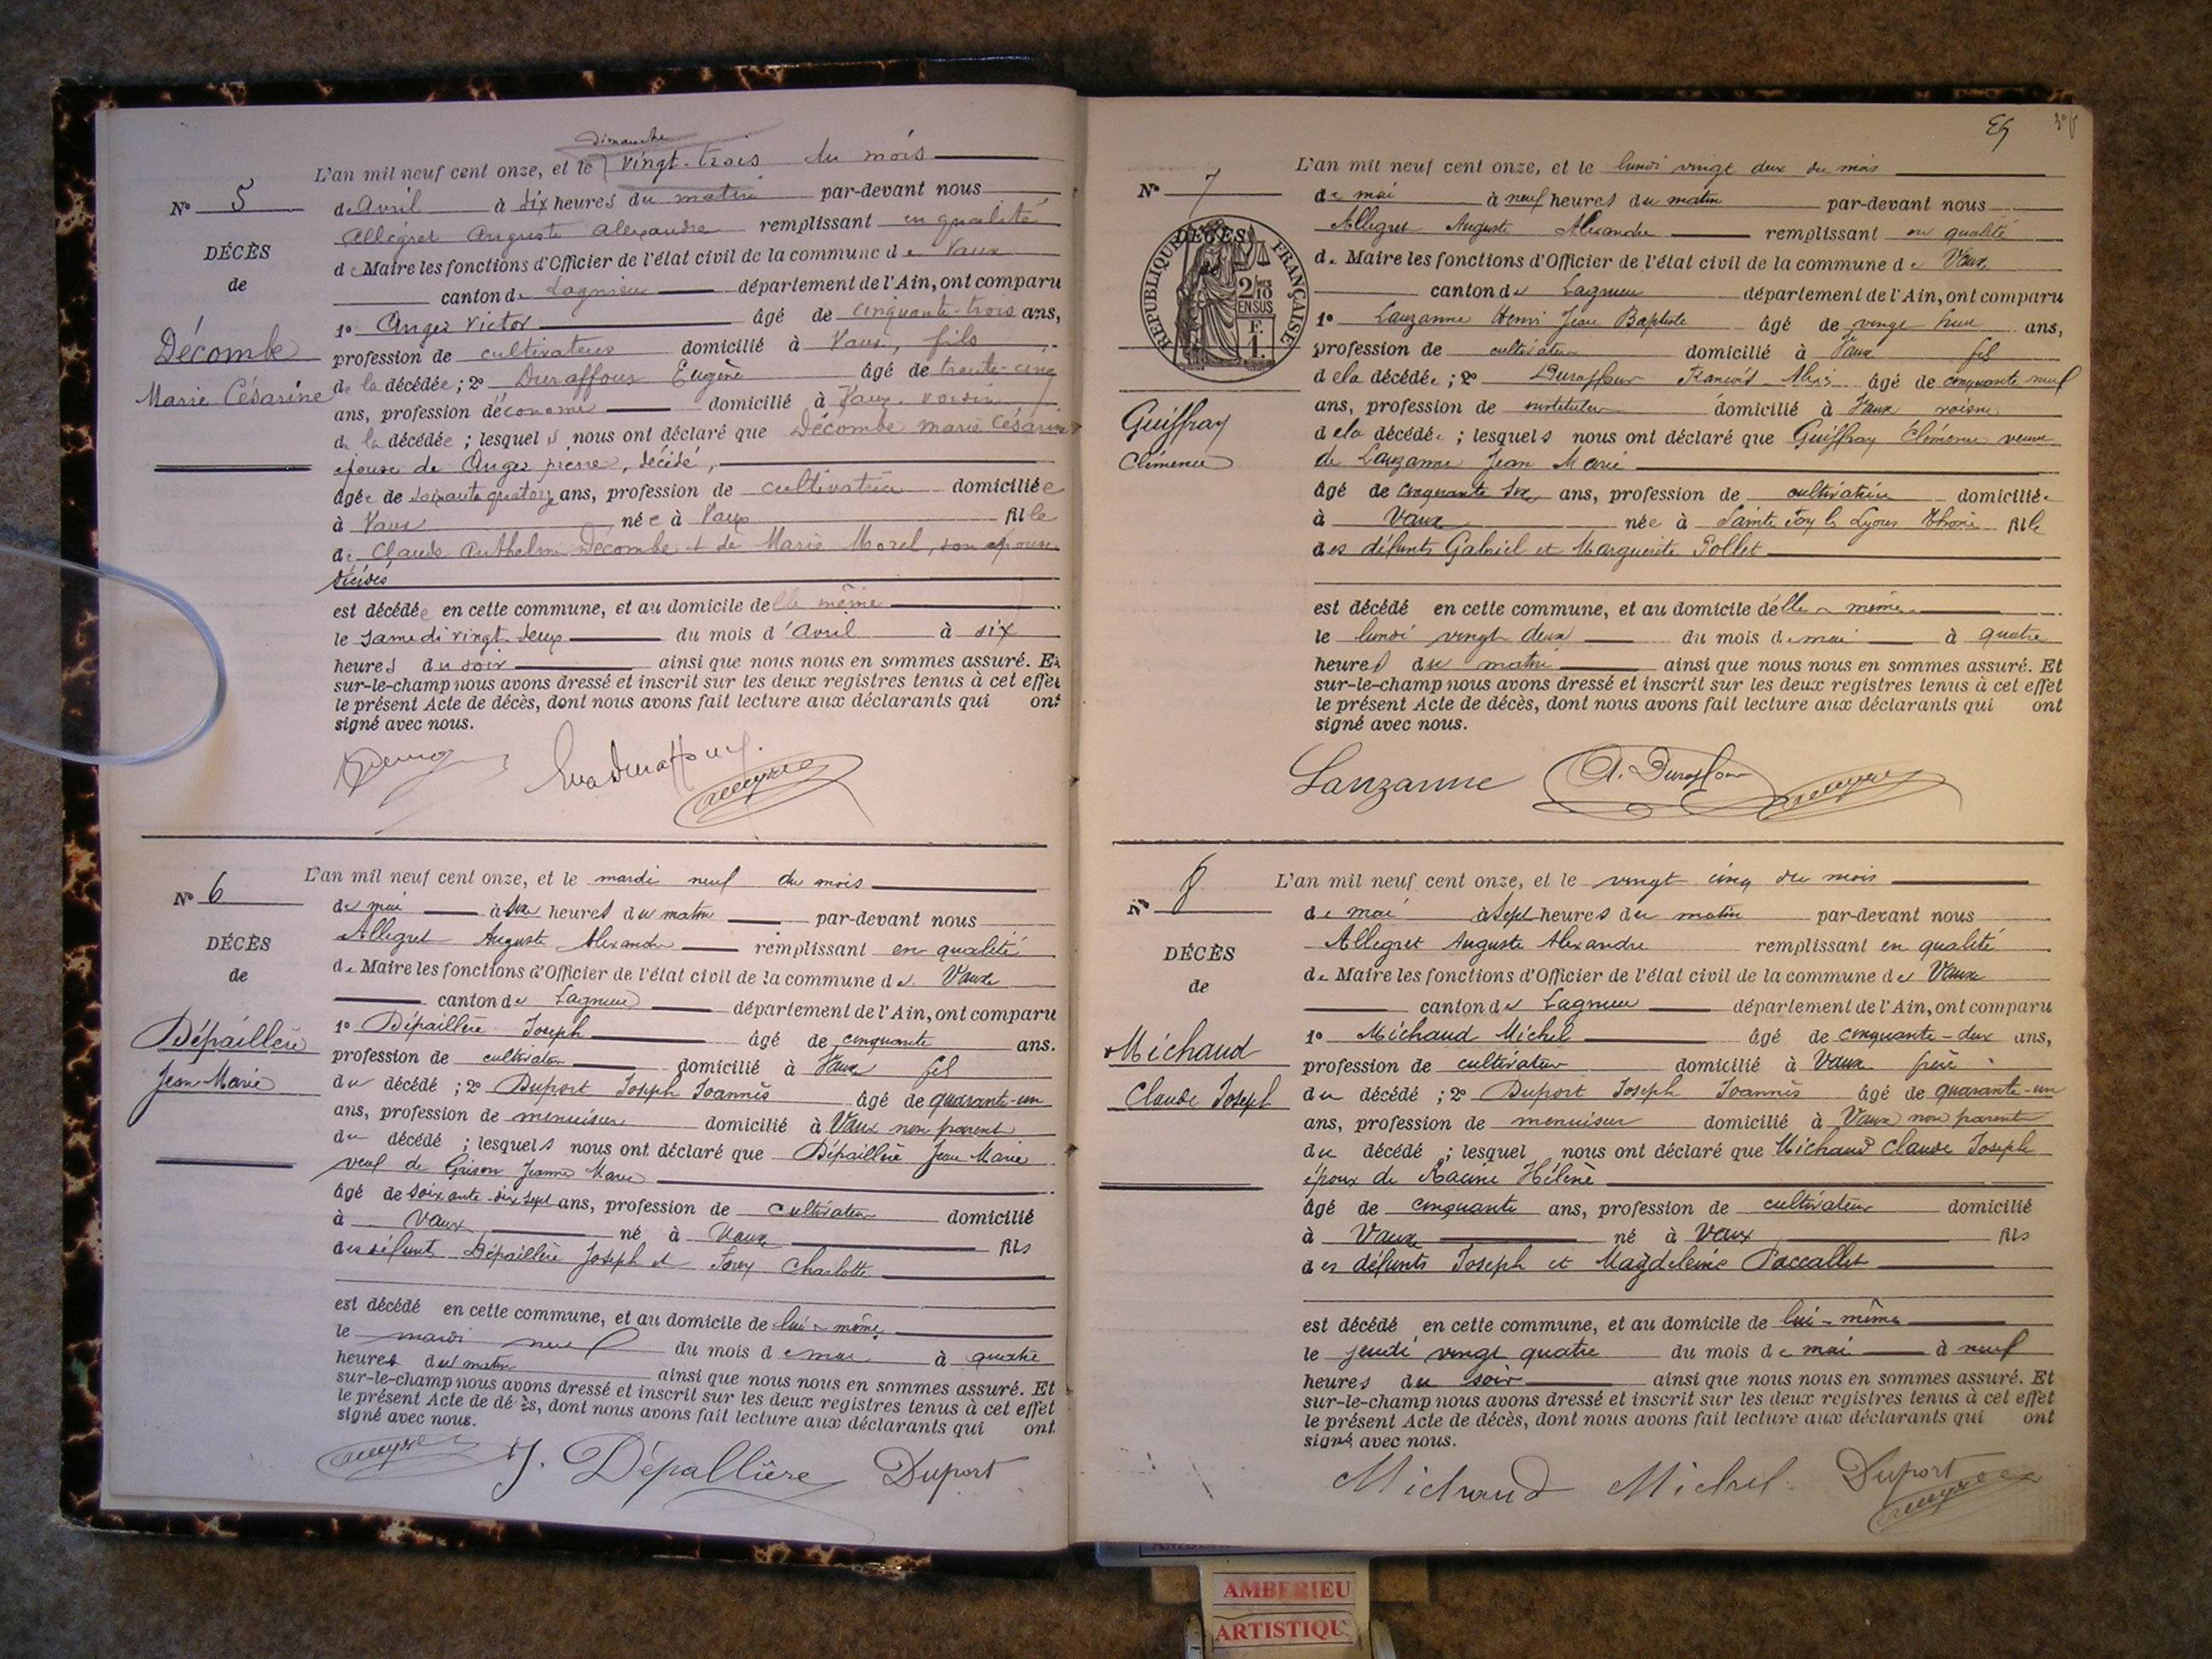 Dimanche
L'an mil neuf cent onze, et le vingt-trois du mois
N° 5
de Avril à six heures du matin par-devant nous
Allégret Auguste Alexandre remplissant en qualité
DÉCÈS
de Maire les fonctions d'Officier de l'état civil de la commune de Vaux
de
canton de Lagnieu département de l'Ain, ont comparu
1° Anger Victor âgé de cinquante-trois ans,
Décombe
profession de cultivateur domicilié à Vaux, fils
Marie Césarine
de la décédée; 2° Duraffour Eugène âgé de trente-cinq
ans, profession d'économe domicilié à Vaux voisin
de la décédée; lesquels nous ont déclaré que Décombe marie Césarine
épouse de Anger pierre, décédé,
âgée de soixante quatorze ans, profession de cultivatrice domiciliée
à Vaux née à Vaux fille
de Claude Anthelme Décombe et de Marie Morel, son épouse
décédés
est décédée en cette commune, et au domicile de elle même
le samedi vingt-deux du mois d'Avril à six
heures du soir ainsi que nous nous en sommes assuré. Et
sur-le-champ nous avons dressé et inscrit sur les deux registres tenus à cet effet
le présent Acte de décès, dont nous avons fait lecture aux déclarants qui ont
signé avec nous.
L'an mil neuf cent onze, et le mardi neuf du mois
N° 6
de mai à six heures du matin par-devant nous
Allegret Auguste Alexandre remplissant en qualité
DÉCÈS
de Maire les fonctions d'Officier de l'état civil de la commune de Vaux
de
canton de Lagnieu département de l'Ain, ont comparu
1° Dépaillère Joseph âgé de cinquante ans.
Dépaillère
profession de cultivateur domicilié à Vaux fils
Jean Marie
du décédé; 2° Duport Joseph Joannès âgé de quarante-un
ans, profession de menuisier domicilié à Vaux non parent
du décédé; lesquels nous ont déclaré que Dépaillère Jean Marie
veuf de Grison Jeanne Marie
âgé de soixante-dix sept ans, profession de cultivateur domicilié
à Vaux né à Vaux fils
des défunts Dépaillère Joseph et Charlotte
est décédé en cette commune, et au domicile de lui-même
le mardi neuf du mois de mai à quatre
heures du matin ainsi que nous nous en sommes assuré. Et
sur-le-champ nous avons dressé et inscrit sur les deux registres tenus à cet effet
le présent Acte de décès, dont nous avons fait lecture aux déclarants qui ont
signé avec nous.
J. Dépallière Duport
L'an mil neuf cent onze, et le lundi vingt deux du mois
N° 7
de mai à neuf heures du matin par-devant nous
Allegret Auguste Alexandre remplissant en qualité
RÉPUBLIQUE FRANÇAISE
DÉCÈS
2/10 EN SUS
F. 1.
de Maire les fonctions d'Officier de l'état civil de la commune de Vaux
canton de Lagnieu département de l'Ain, ont comparu
1° Lauzanne Henri Jean Baptiste âgé de vingt ans,
profession de cultivateur domicilié à Vaux fils
de la décédée; 2° Duraffour François Alexis âgé de cinquante neuf
Guiffray
ans, profession de instituteur domicilié à Vaux voisin
Clémence
de la décédée; lesquels nous ont déclaré que Guiffray Clémence veuve
de Lauzanne Jean Marie
âgé de cinquante six ans, profession de cultivatrice domiciliée
à Vaux née à Sainte Foy les Lyons Rhône fille
des défunts Gabriel et Marguerite Pollet
est décédé en cette commune, et au domicile d'elle-même
le lundi vingt deux du mois de mai à quatre
heures du matin ainsi que nous nous en sommes assuré. Et
sur-le-champ nous avons dressé et inscrit sur les deux registres tenus à cet effet
le présent Acte de décès, dont nous avons fait lecture aux déclarants qui ont
signé avec nous.
Lauzanne A. Duraffour
L'an mil neuf cent onze, et le vingt cinq du mois
N° 8
de mai à sept heures du matin par-devant nous
Allegret Auguste Alexandre remplissant en qualité
DÉCÈS
de Maire les fonctions d'Officier de l'état civil de la commune de Vaux
de
canton de Lagnieu département de l'Ain, ont comparu
1° Michaud Michel âgé de cinquante-deux ans,
Michaud
profession de cultivateur domicilié à Vaux frère
Claude Joseph
du décédé; 2° Duport Joseph Joannès âgé de quarante-un
ans, profession de menuisier domicilié à Vaux non parent
du décédé; lesquel nous ont déclaré que Michaud Claude Joseph
époux de Racine Hélène
âgé de cinquante ans, profession de cultivateur domicilié
à Vaux né à Vaux fils
des défunts Joseph et Magdeleine Paccallet
est décédé en cette commune, et au domicile de lui-même
le jeudi vingt quatre du mois de mai à neuf
heures du soir ainsi que nous nous en sommes assuré. Et
sur-le-champ nous avons dressé et inscrit sur les deux registres tenus à cet effet
le présent Acte de décès, dont nous avons fait lecture aux déclarants qui ont
signé avec nous.
Michaud Michel Duport
AMBERIEU
ARTISTIQU